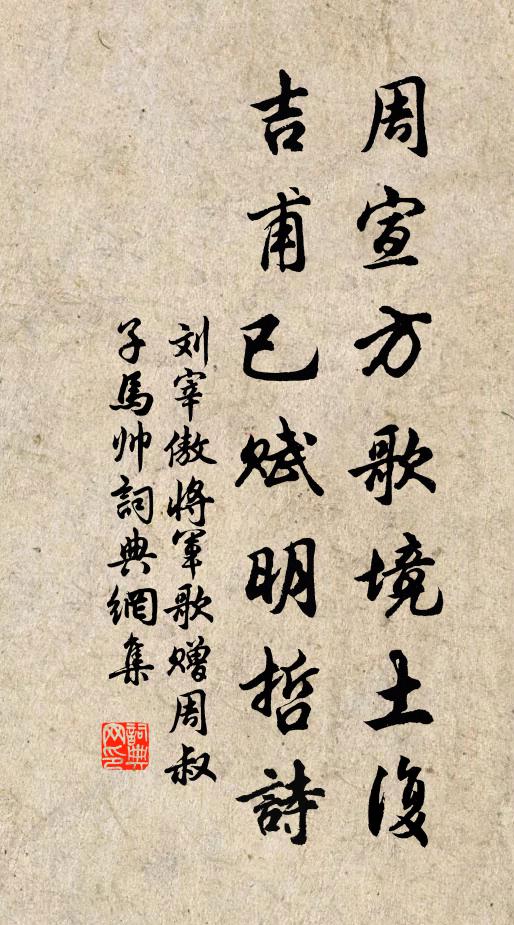 周宣方歌境土復
吉甫已赋明哲詩
刘宰傲将军歌赠周叔
子馬帅詞典網集
詞典网印